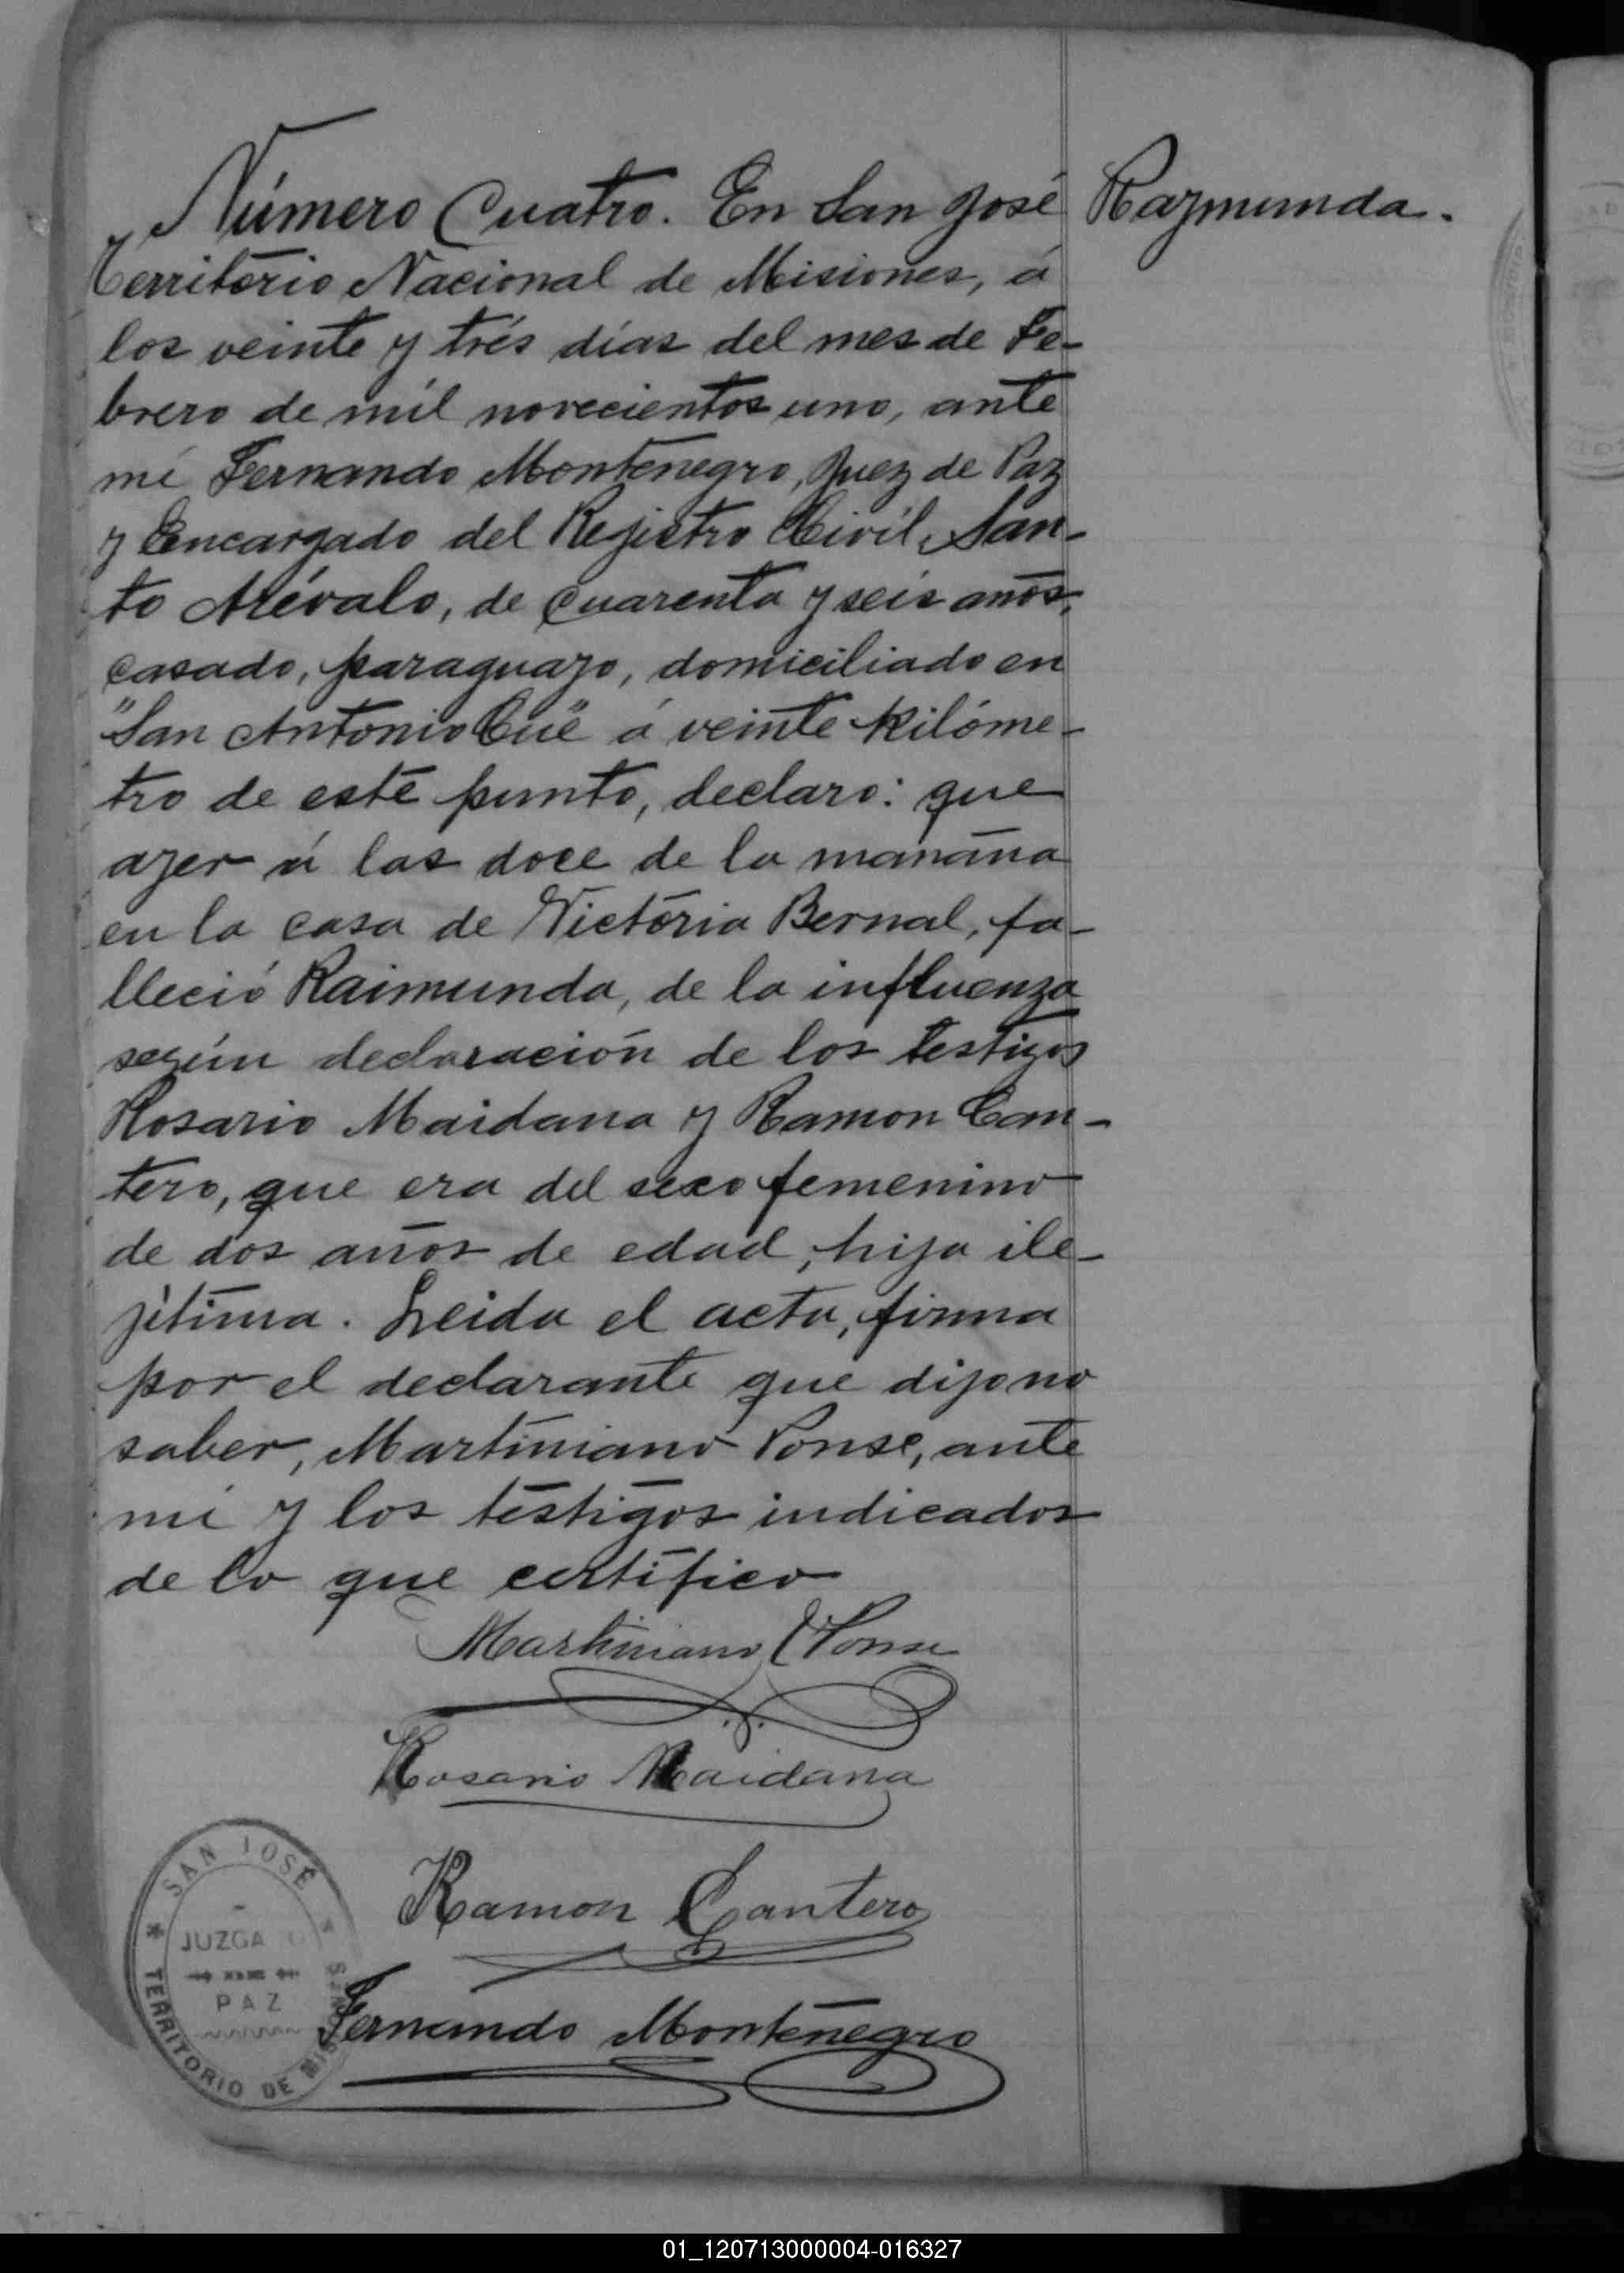 Número Cuatro. En San José
Raymunda.
Territorio Nacional de Misiones, á
los veinte y trés días del mes de Fe-
brero de mil novecientos uno, ante
mi Fernando Montenegro, Juez de Paz
y Encargado del Rejistro Civil, San-
to Arévalo, de cuarenta y seis años,
casado, paraguayo, domiciliado en
"San Antonio Cué" á veinte kilóme-
tro de este punto, declaro: que
ayer á las doce de la mañana
en la casa de Victoria Bernal, fa-
lleció Raimunda, de la influenza
según declaración de los testigos
Rosario Maidana y Ramon Can-
tero, que era del sexo femenino
de dos años de edad, hija ile-
jítima. Leida el acta, firma
por el declarante que dijo no
saber, Martiniano Ponse, ante
mi y los testigos indicados
de lo que certifico
Martiniano Ponse
Rosario Maidana
Ramon Cantero
Fernando Montenegro
SAN JOSÉ
JUZGA O
PAZ
TERRITORIO DE MISIONES
01_120713000004-016327